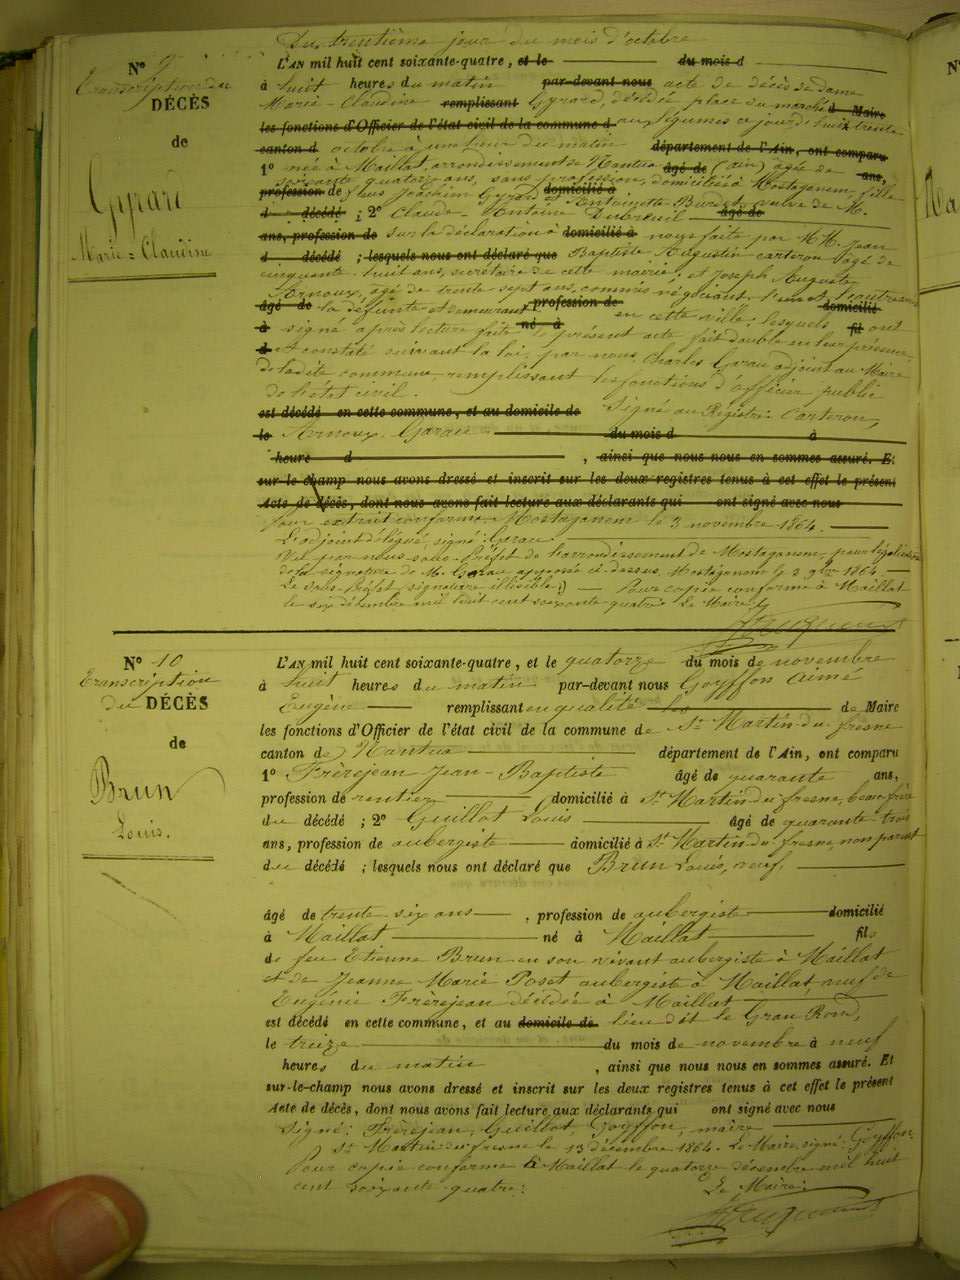 Du trentième jour du mois d'octobre
N° 9
L'AN mil huit cent soixante-quatre, et le du mois d
Transcription du
à huit heures du matin par-devant nous acte de décès de dame
DÉCÈS
Marie-Claudine remplissant Gyrard, décédée place du marché d Maire
les fonctions d'Officier de l'état civil de la commune d aux légumes ce jourd'hui trente
de
canton d octobre à une heure du matin département de l'Ain, ont comparu
1° née à Maillat arrondissement de Nantua âgé de (ain) âgée de ans,
soixante quatorze ans, sans profession, domiciliée à Mostaganem, fille
profession de feus Joachim Gyrard et Antoinette domicilié à
Gyrard
d décédé ; 2° Claude-Antoine Dubreuil âgé de
Marie-Claudine
ans, profession de sur la déclaration à domicilié à nous faite par M.M. Jean
d décédé ; lesquels nous ont déclaré que Baptiste Augustin Carteron âgé de
cinquante huit ans, secrétaire de cette mairie; et Joseph Auguste
Arnoux, âgé de trente sept ans, commis négociant, l'un et l'autre
âgé de la défunte et demeurant profession de en cette ville; lesquels domicilié
à signé après lecture faite né à le présent acte fait double en leur présence fil ont
d et constaté suivant la loi, par nous, Charles Garau adjoint au Maire
de ladite commune, remplissant les fonctions d'officier public
de l'état civil.
est décédé en cette commune, et au domicile de Signé au Registre: Carteron,
le Arnoux, Garau du mois d à
heure d , ainsi que nous nous en sommes assuré. Et
sur-le champ nous avons dressé et inscrit sur les deux registres tenus à cet effet le présent
Acte de décès, dont nous avons fait lecture aux déclarants qui ont signé avec nous
Pour extrait conforme. Mostaganem le 3 novembre 1864.
L'adjoint délégué, signé: Garau
Vu par nous sous-Préfet de l'arrondissement de Mostaganem, pour légalisation
de la signature de M. Garau apposée ci-dessus. Mostaganem le 3 9bre 1864.
Le sous-Préfet (signature illisible) Pour copie conforme à Maillat
le six décembre mil huit cent soixante quatre. Le Maire,
N° 10
L'AN mil huit cent soixante-quatre, et le quatorze du mois de novembre
Transcription
à huit heures du matin par-devant nous Goyffon Aimé
du DÉCÈS
Eugène remplissant en qualité de Maire
les fonctions d'Officier de l'état civil de la commune de St Martin-du-fresne
de
canton de Nantua département de l'Ain, ont comparu
1° Frèrejean Jean-Baptiste âgé de quarante ans,
Brun
profession de rentier domicilié à St Martin du fresne, beau frère
Louis.
du décédé ; 2° Guillot Louis âgé de quarante-trois
ans, profession de aubergiste domicilié à St Martin du fresne, non parent
du décédé ; lesquels nous ont déclaré que Brun Louis, veuf,
âgé de trente six ans , profession de aubergiste domicilié
à Maillat né à Maillat fils
de feu Etienne Brun en son vivant aubergiste à Maillat
et de Jeanne Marie Poset aubergiste à Maillat, veuf de
Eugénie Frèrejean décédée à Maillat
est décédé en cette commune, et au domicile de lieu dit le Grau Rond,
le treize du mois de novembre à neuf
heures du matin , ainsi que nous nous en sommes assuré. Et
sur-le-champ nous avons dressé et inscrit sur les deux registres tenus à cet effet le présent
Acte de décès, dont nous avons fait lecture aux déclarants qui ont signé avec nous
Signé: Frèrejean, Guillot, Goyffon, maire
St Martin du fresne le 13 décembre 1864. Le Maire, signé: Goyffon.
Pour copie conforme à Maillat le quatorze décembre mil huit
cent soixante quatre: Le Maire: